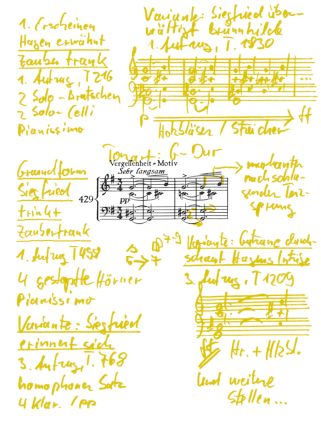 1. Erscheinen
Hagen erwähnt
Zaubertrank
1. Aufzug, T 216
2 Solo-Bratschen
2 Solo-Celli
Pianissimo
Variante: Siegfried über-
wältigt Brünnhilde
1. Aufzug, T. 1830
p ff
Holzbläser / Streicher
Tonart: G-Dur
Vergessenheit-Motiv
Sehr langsam
429
pp
nachschla-
gender Terz-
sprung
Grundform
Siegfried
trinkt
Zaubertrank
4 gestopfte Hörner
Pianissimo
Variante: Gutrune durch-
schaut Hagens Intrige
3. Aufzug, T 1209
ff Hr. + Hlzbl.
Und weitere
Stellen...
Variante: Siegfried
erinnert sich
3. Aufzug, T. 768
homophoner Satz
4 Klar. / pp